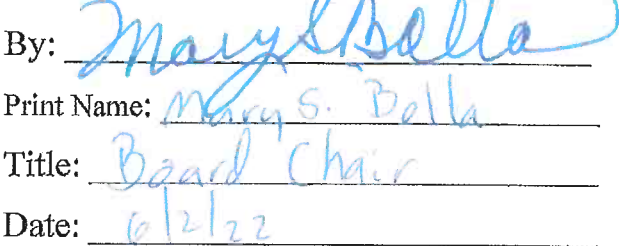 By: Mary S Balla
Print Name: Mary S. Balla
Title: Board Chair
Date: 6/2/22